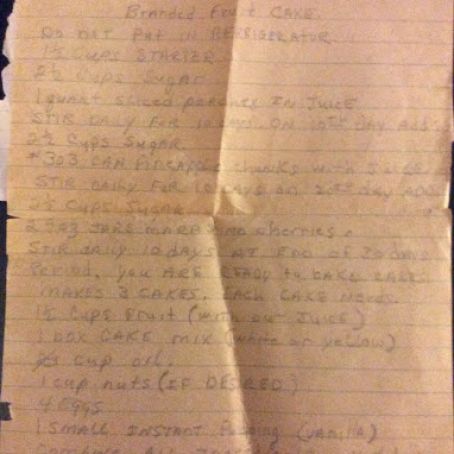 Branded Fruit CAKE
Do NOT Put IN REFRIGERATOR
1½ Cups STARTER
2½ Cups Sugar
1 quart sliced peaches IN JUICE
STIR DAILY FOR 10 days ON 10th DAY Add:
2½ Cups Sugar.
#303 CAN Pineapple chunks with JUICE
STIR DAILY FOR 10 days on 20th day ADD
2½ Cups Sugar
2 JARS MARASHINO cherries.
STIR daily 10 days AT END of 30 days
PERIOD, you ARE READY to bAKE CAKES.
MAKES 3 CAKES. EACH CAKE NEEDS
1½ Cups Fruit (with out JUICE)
1 box CAKE mix (white or yellow)
cup oil.
1 cup nuts (IF DESIRED)
4 Eggs
1 SMALL INSTANT Pudding (VANILLA)
COMBINE ALL